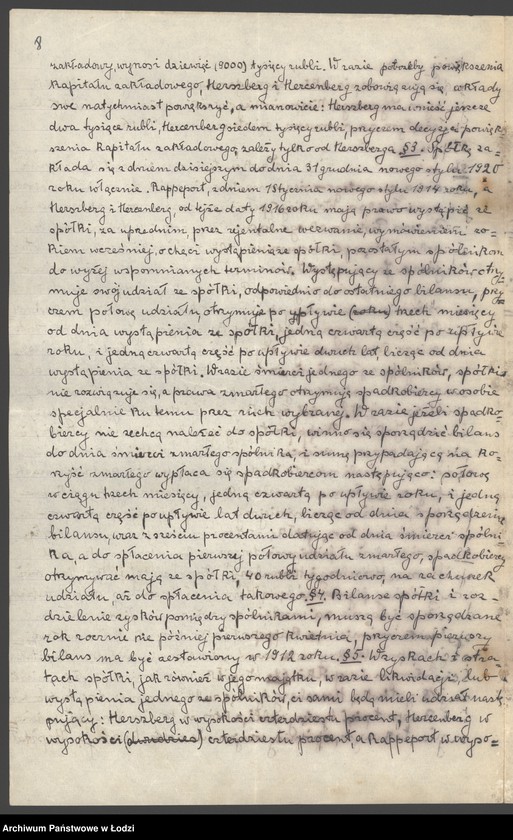 8
zakładowy, wynosi dziewięć (9000) tysięcy rubli. W razie potrzeby powiększenia
Kapitału zakładowego, Herszberg i Hercenberg zobowiązują się wkłady
swe natychmiast powiększyć, a mianowicie: Herszberg ma wnieść jeszcze
dwa tysiące rubli, Hercenberg siedem tysięcy rubli, przyczem decyzja powięk-
szenia Kapitału zakładowego, zależy tylko od Herszberga. §3. Spółkę za-
kłada się z dniem dzisiejszym do dnia 31 grudnia nowego stylu 1920
roku włącznie. Rappeport, z dniem 1 Stycznia nowego stylu 1914 roku, a
Herszberg i Hercenberg, od tejże daty 1916 roku mają prawo wystąpić ze
spółki, za uprzednim przez rejentalne wezwanie, wymówieniem ro-
kiem wcześniej, o chęci wystąpienia ze spółki, pozostałym spólnikom
do wyżej wspomnianych terminów. Występujący ze spólników otrzy-
muje swój udział ze spółki, odpowiednio do ostatniego bilansu, przy
czem połowę udziału otrzymuje po upływie (roku) trzech miesięcy
od dnia wystąpienia ze spółki, jedną czwartą część po upływie
roku, i jedną czwartą część po upływie dwuch lat, licząc od dnia
wystąpienia ze spółki. W razie śmierci jednego ze spólników, spółka
nie rozwiązuje się, a prawa zmarłego otrzymują spadkobiercy w osobie
specjalnie ku temu przez nich wybranej. W razie jeżeli spadko-
biercy nie zechcą należeć do spółki, winno się sporządzić bilans
do dnia śmierci zmarłego spólnika, i sumę przypadającą na ko-
rzyść zmarłego wypłaca się spadkobiercom następująco: połowę
w ciągu trzech miesięcy, jedną czwartą po upływie roku, i jedną
czwartą część po upływie lat dwuch, licząc od dnia sporządzenia
bilansu, wraz z sześciu procentami dostając od dnia śmierci spólni-
ka, a do spłacenia pierwszej połowy udziału zmarłego, spadkobiercy
otrzymywać mają ze spółki, 40 rubli tygodniowo, na rachunek
udziału, aż do spłacenia takowego. §4. Bilanse spółki i roz-
dzielenie zysków pomiędzy spólnikami, muszą być sporządzane
rok rocznie nie później pierwszego kwietnia, przyczem pierwszy
bilans ma być zestawiony w 1912 roku. §5. W zyskach i stra-
tach spółki, jak również w jego majątku, w razie likwidacji, lub
wystąpienia jednego ze spólników, ci sami będą mieli udział nastę-
pujący: Herszberg w wysokości czterdziestu procent, Hercenberg w
wysokości (dwudzies) czterdziestu procent, a Rappeport w wyso-
Archiwum Państwowe w Łodzi